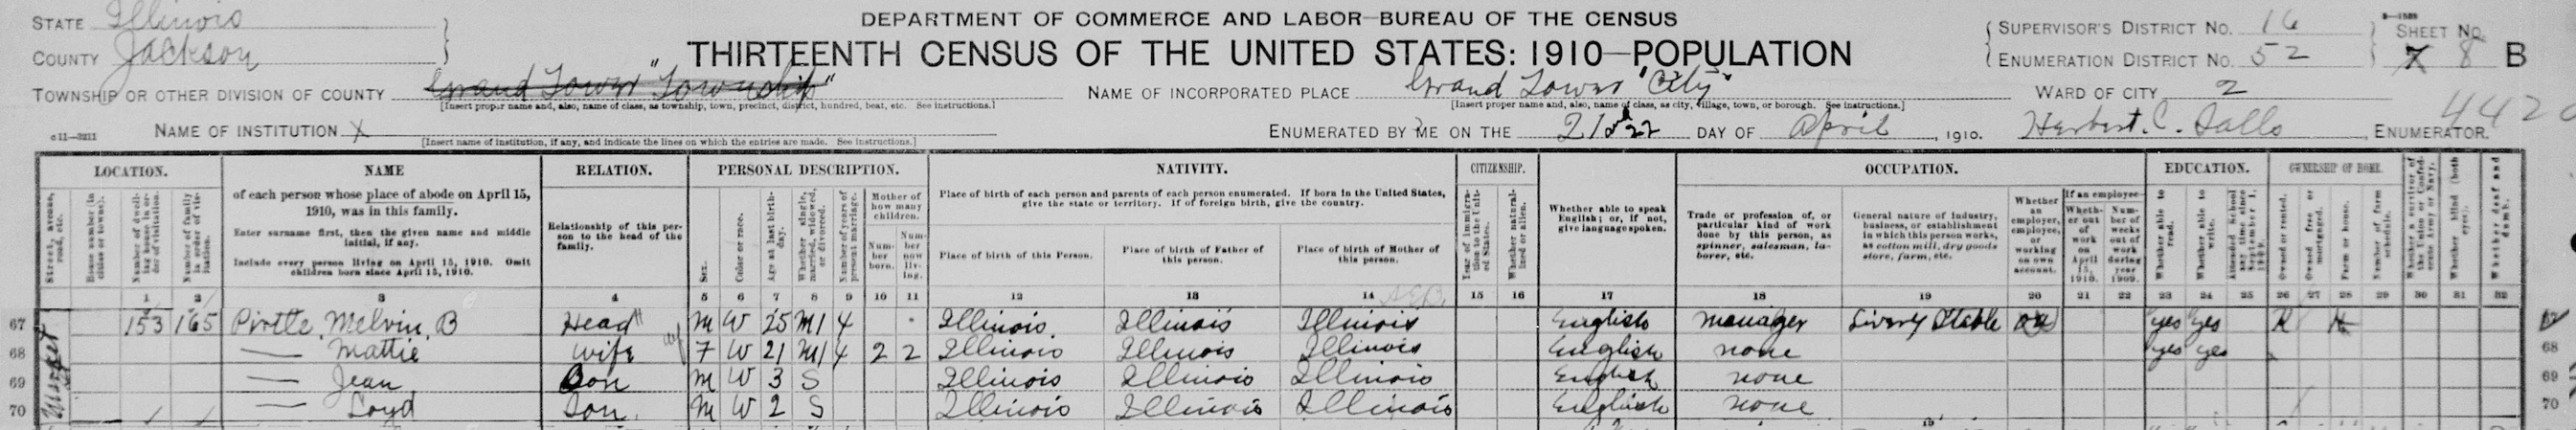 STATE Illinois
COUNTY Jackson
DEPARTMENT OF COMMERCE AND LABOR—BUREAU OF THE CENSUS
THIRTEENTH CENSUS OF THE UNITED STATES: 1910—POPULATION
SUPERVISOR'S DISTRICT NO. 16
ENUMERATION DISTRICT NO. 52
SHEET NO. 8 B
TOWNSHIP OR OTHER DIVISION OF COUNTY Grand Tower "Township"
[Insert proper name and, also, name of class, as township, town, precinct, district, hundred, beat, etc. See instructions.]
NAME OF INCORPORATED PLACE Grand Tower "City"
[Insert proper name and, also, name of class, as city, village, town, or borough. See instructions.]
WARD OF CITY 2
NAME OF INSTITUTION X
[Insert name of institution, if any, and indicate the lines on which the entries are made. See instructions.]
ENUMERATED BY ME ON THE 21 22 DAY OF April, 1910. Herbert. C. ENUMERATOR.
LOCATION.
Street, avenue, road, etc.
House number (in cities or towns).
Number of dwelling house in order of visitation.
Number of family in order of visitation.
NAME
of each person whose place of abode on April 15, 1910, was in this family.
Enter surname first, then the given name and middle initial, if any.
Include every person living on April 15, 1910. Omit children born since April 15, 1910.
RELATION.
Relationship of this person to the head of the family.
PERSONAL DESCRIPTION.
Sex.
Color or race.
Age at last birthday.
Whether single, married, widowed, or divorced.
Number of years of present marriage.
Mother of how many children.
Number born.
Number now living.
NATIVITY.
Place of birth of each person and parents of each person enumerated. If born in the United States, give the state or territory. If of foreign birth, give the country.
Place of birth of this Person.
Place of birth of Father of this person.
Place of birth of Mother of this person.
CITIZENSHIP.
Year of immigration to the United States.
Whether naturalized or alien.
Whether able to speak English; or, if not, give language spoken.
OCCUPATION.
Trade or profession of, or particular kind of work done by this person, as spinner, salesman, laborer, etc.
General nature of industry, business, or establishment in which this person works, as cotton mill, dry goods store, farm, etc.
Whether an employer, employee, or working on own account.
If an employee—
Whether out of work on April 15, 1910.
Number of weeks out of work during year 1909.
EDUCATION.
Whether able to read.
Whether able to write.
Attended School any time since September 1, 1909.
OWNERSHIP OF HOME.
Owned or rented.
Owned free or mortgaged.
Farm or house.
Number of farm schedule.
Whether a survivor of the Union or Confederate Army or Navy.
Whether blind (both eyes).
Whether deaf and dumb.
1 2 3 4 5 6 7 8 9 10 11 12 13 14 15 16 17 18 19 20 21 22 23 24 25 26 27 28 29 30 31 32
67 153 165 Pirtle, Melvin, B Head M W 25 M1 4 Illinois Illinois Illinois English manager Livery Stable yes yes R H
68 — Mattie wife F W 21 M1 4 2 2 Illinois Illinois Illinois English none yes yes 68
69 — Jean Son M W 3 S Illinois Illinois Illinois English none 69
70 — Loyd Son. M W 2 S Illinois Illinois Illinois English none 70